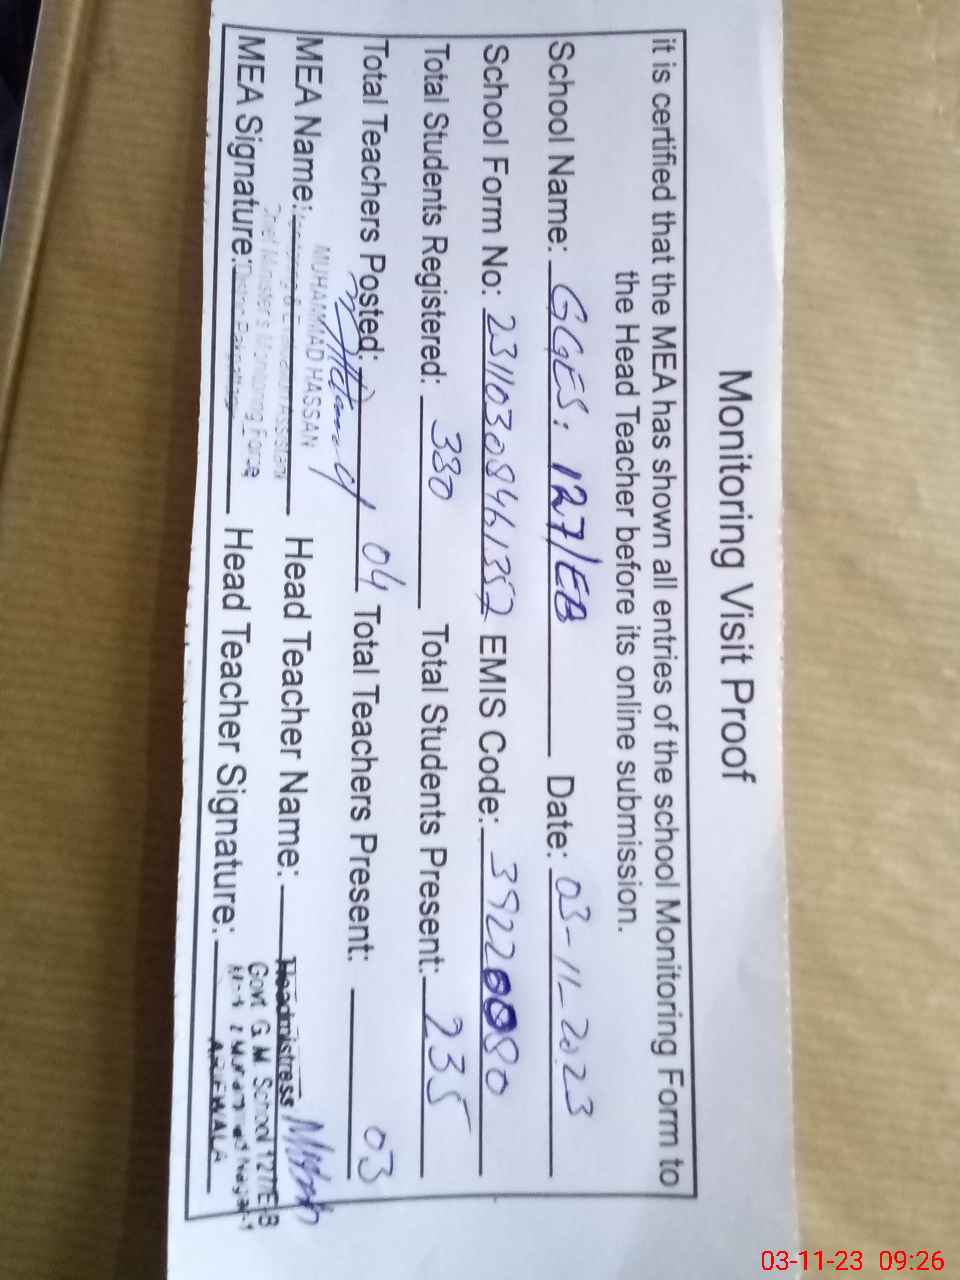 Monitoring Visit Proof
it is certified that the MEA has shown all entries of the school Monitoring Form to
the Head Teacher before its online submission.
School Name: GGES: 127/EB Date: 03-11-2023
School Form No: 23110308461352 EMIS Code: 39220080
Total Students Registered: 330 Total Students Present: 235
Total Teachers Posted: 04 Total Teachers Present: 03
MUHAMMAD HASSAN
MEA Name: Monitoring & Evaluation Assistant Head Teacher Name: Headmistress
Chief Minister's Monitoring Force Govt G.M. School 127/E-B
MEA Signature: District Pakpattan Head Teacher Signature:
ARIFWALA
03-11-23 09:26